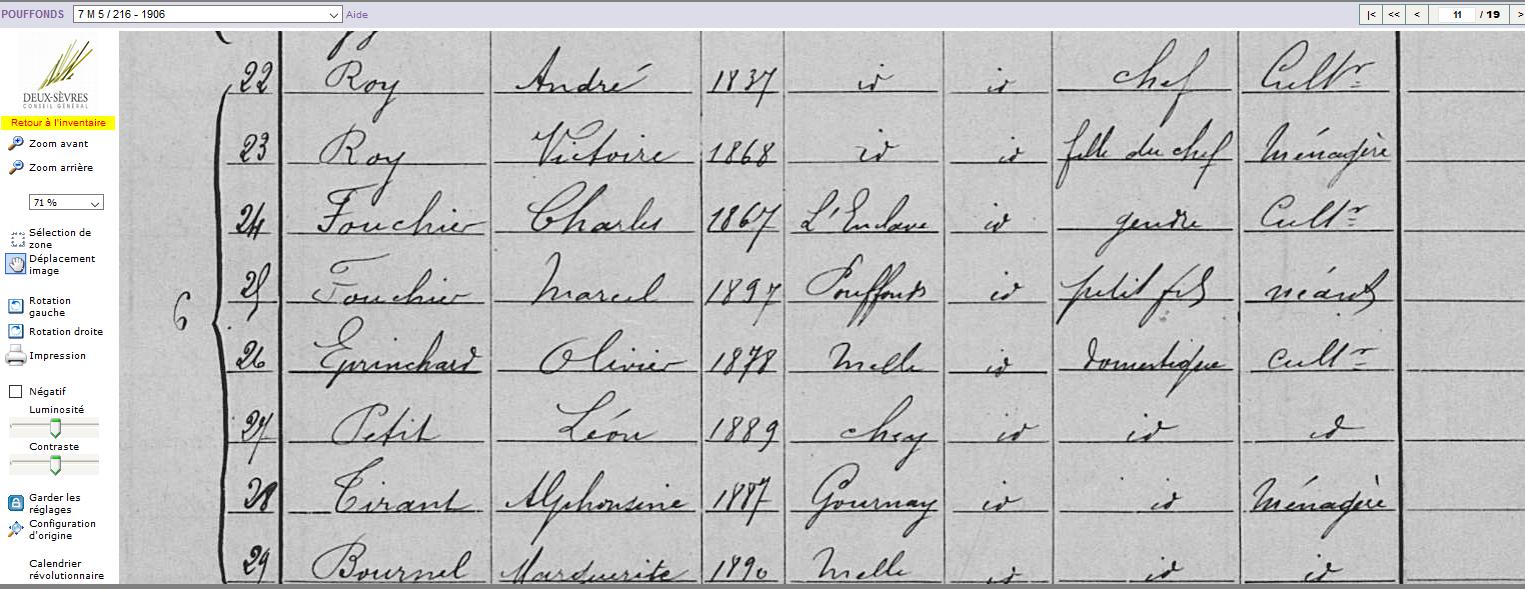 POUFFONDS 7 M 5 / 216 - 1906 Aide |< << < 11 / 19 >
DEUX-SÈVRES
CONSEIL GÉNÉRAL
Retour à l'inventaire
Zoom avant
Zoom arrière
71 %
Sélection de
zone
Déplacement
image
Rotation
gauche
Rotation droite
Impression
Négatif
Luminosité
Contraste
Garder les
réglages
Configuration
d'origine
Calendrier
révolutionnaire
22 Roy André 1837 id id chef Cultr
23 Roy Victoire 1868 id id fille du chef Ménagère
24 Fouchier Charles 1867 L'Enclave id gendre Cultr
25 Fouchier Marcel 1897 Pouffonds id petit fils néant
6
26 Eprinchard Olivier 1878 Melle id domestique Cultr
27 Petit Léon 1889 chey id id id
28 Tirant Alphonsine 1887 Gournay id id Ménagère
29 Bournel Marguerite 1890 Melle id id id